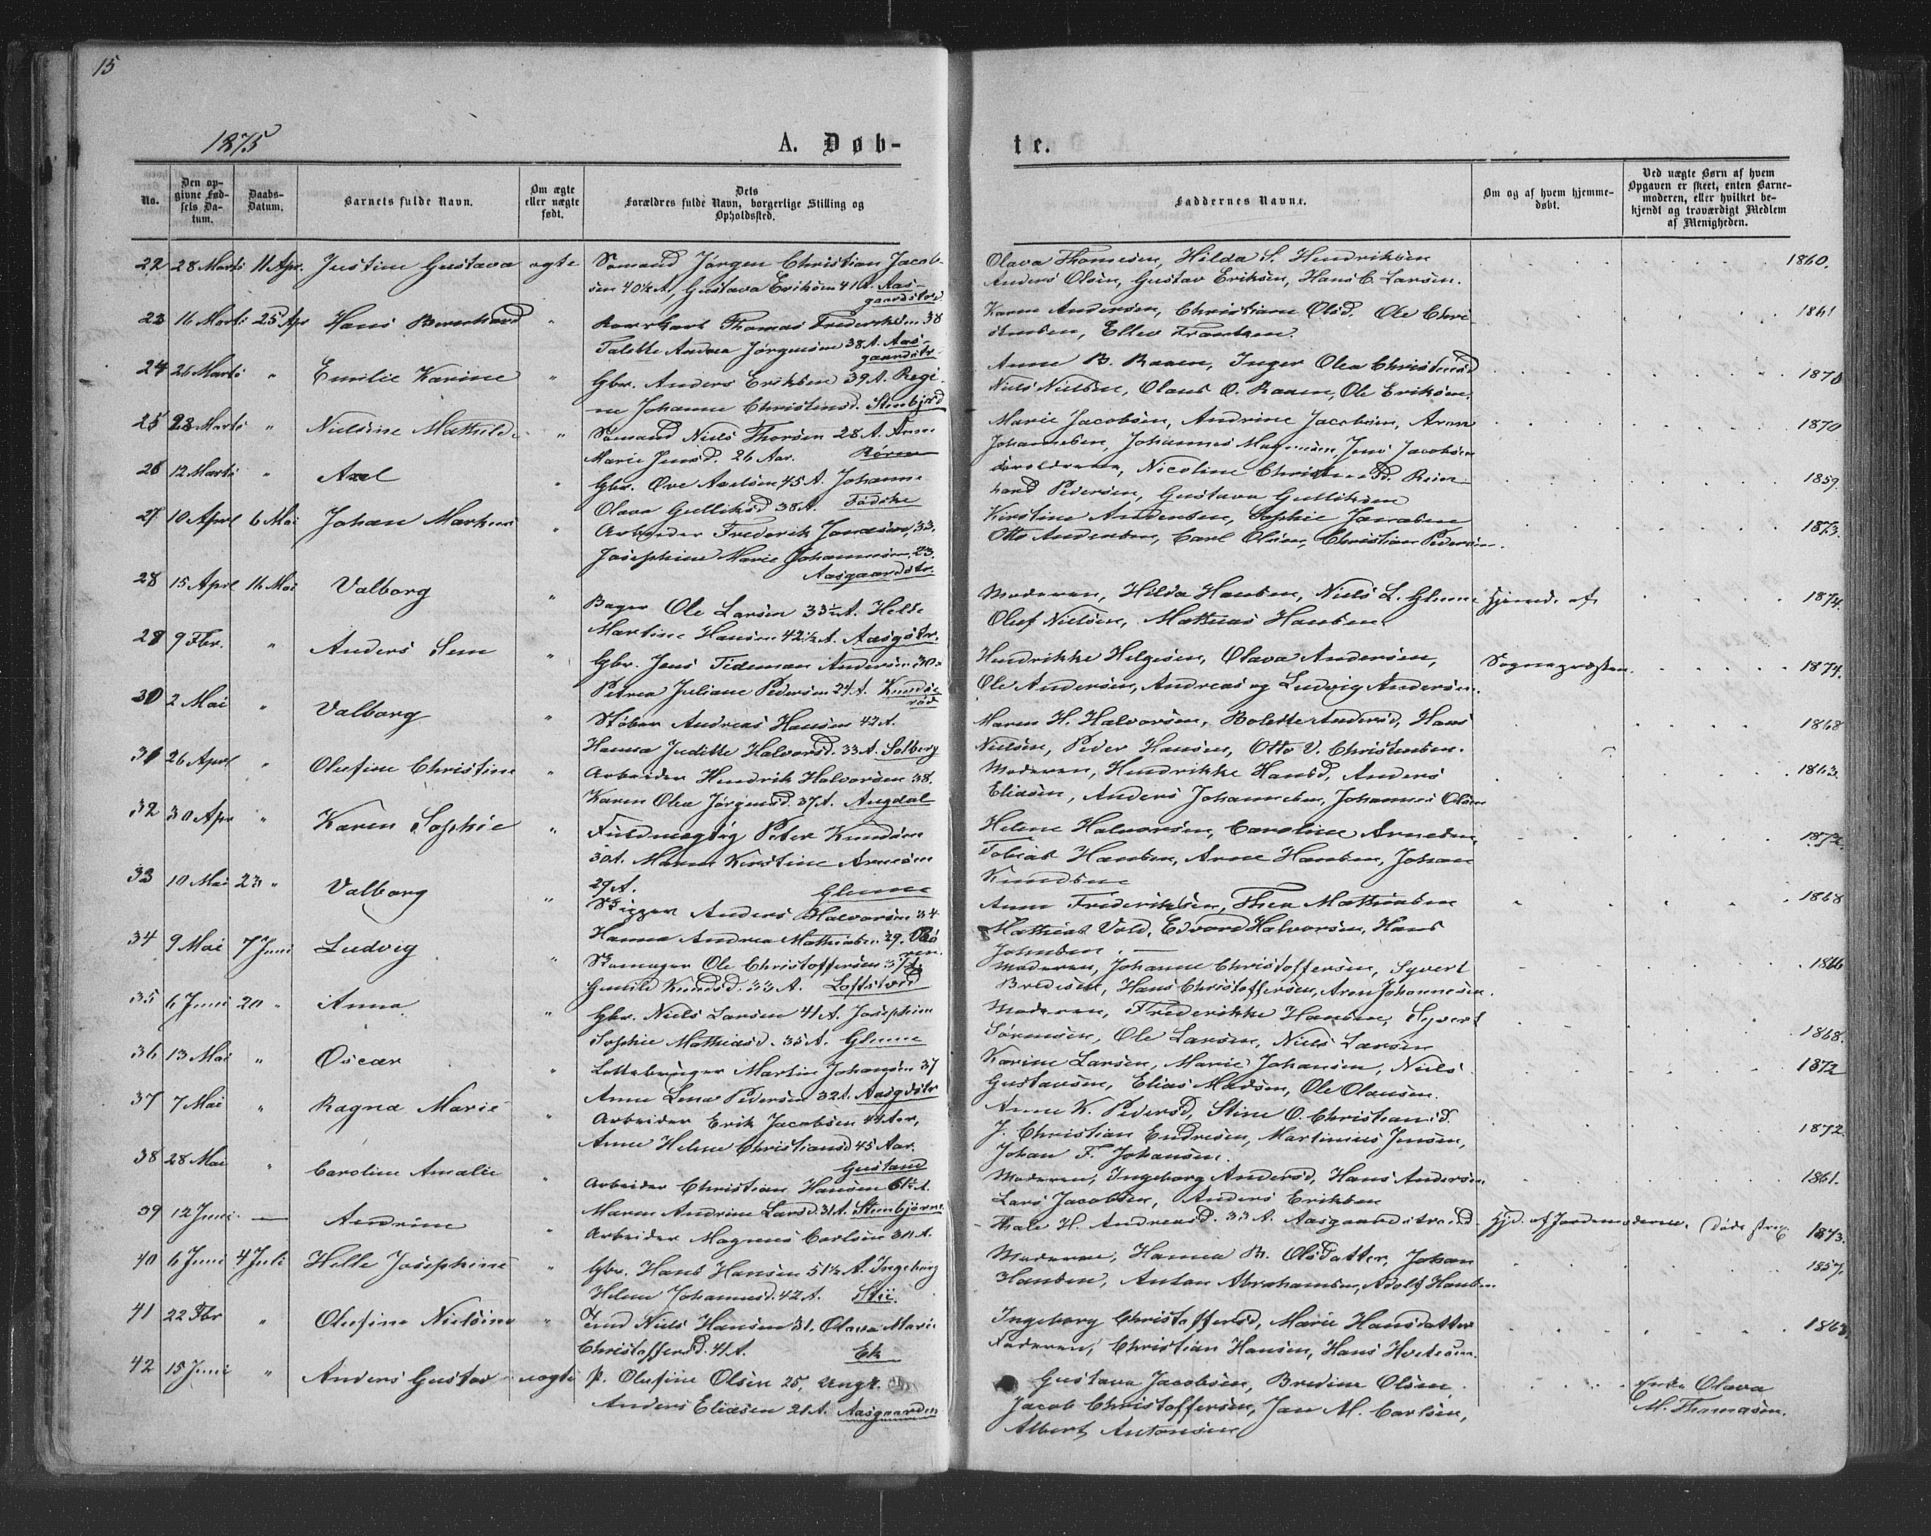 15
1875
A. Døb-
te.
No.
Den op-
givne Fød-
sels Da-
tum.
Daabs-
Datum.
Barnets fulde Navn.
Om ægte
eller uægte
født.
Dets
Forældres fulde Navn, borgerlige Stilling og
Opholdssted.
Faddernes Navne.
Om og af hvem hjemme-
døbt.
Ved uægte Børn af hvem
Opgaven er skeet, enten Barne-
moderen, eller hvilket be-
kjendt og troværdigt Medlem
af Menigheden.
22 28 Marts 11 Apr. Justine Gustava ægte Sømand Jørgen Christian Jacob-
sen 40½ A, Gustava Eriksen 41 A. Aas-
gaardstrd.
Olava Thomesen, Hilda S. Hendriksen
Anders Olsen, Gustav Eriksen, Hans C. Larsen.
1860.
23 16 Marts 25 Apr Hans Bernhard " Thomas Frederiksen 38
Talette Andrea Jørgensen 38 A. Aas-
gaardstr.
Karen Andersen, Christiane Olsd. Ole Chri-
stensen, Ellev Frantzen.
1861
24 26 Marts " Emilie Karine " Gbr. Anders Eriksen 39 A. Regi-
ne Johanne Christensd. Stenbjørd
Anne B. Raaen, Inger Olea Christensd
Niels Nielsen, Olaus O. Raaen, Ole Eriksen.
187
25 28 Marts " Nielsine Mathilde " Sømand Niels Thorsen 28 A. Anne
Marie Jensd. 26 Aar. Røren
Marie Jacobsen, Andrine Jacobsen, Aron
Johannesen, Johannes Magnusen, Jens Jacobsen
1870
26 12 Marts " Axel " Gbr. Ove Axelsen 45 A. Johanne
Olava Gulliksd 38 A.
Forældrene, Nicoline Christensd. Rein-
hard Pedersen, Gustava Gulliksen
1859.
27 10 April 6 Mai Johan Markus " Arbeider Frederik Jonassen, 33.
Josephine Marie Johannesen, 23.
Aasgaardstr.
Kirstine Andersen, Sophie Jonassen
Otto Andersen, Carl Olsen, Christian Pedersen.
1873.
28 15 April 16 Mai Valborg " Bager Ole Larsen 33½ A. Helle
Martine Hansen 42½ A. Aasgstr.
Moderen, Hilda Hansen, Niels L. Glenne
Oluf Nielsen, Mathias Hansen
Hjemd. af
1874.
29 9 Fbr. " Anders Sem " Gbr. Jens Tideman Andersen 30
Petrea Juliane Pedersen 24 A. Knudse
rød
Hendrikke Helgesen, Olava Andersen,
Ole Andersen, Andreas og Ludvig Andersen.
Sognepræsten.
1874.
30 2 Mai " Valborg " Støber Andreas Hansen 42 A.
Hanna Juditte Halvorsd. 33 A. Solberg
Maren H. Halvorsen, Bolette Andersd, Hans
Nielsen, Peder Hansen, Otto V. Christensen.
1868
31 26 April " Olufine Christine " Arbeider Hendrik Halvorsen 38.
Karen Olea Jørgensd. 37 A. Augdal
Moderen, Hendrikke Hansd, Anders
Eliasen, Anders Johannesen, Johannes Olsen
1863
32 30 Apr " Karen Sophie " Fuldmægtig Peter Knudsen
30 A. Maren Kirstine Arnesen
29 A. Glenne
Helene Halvorsen, Caroline Arnesen,
Tobias Hansen, Arne Hansen, Johan
Knudsen
1872.
33 10 Mai 23 " Valborg " Skipper Anders Halvorsen 34.
Hanna Andrea Mathiasen 29. Rø
ren.
Anne Frederiksen, Thea Mathiasen
Mathias Vold, Edvard Halvorsen, Hans
Johnsen.
1868
34 9 Mai 7 Juni Ludvig " Skomager Ole Christoffersen 37 A.
Gunild Knudsd. 33 A. Loftstvd
Moderen, Johanne Christoffersen, Syvert
Bredesen, Hans Christoffersen, Aron Johannesen.
1866
35 6 Juni 20 " Anna. " Gbr. Niels Larsen 41 A. Josephine
Sophie Mathiasd. 35 A. Glenne
Moderen, Frederikke Hansen, Syvert
Sørensen, Ole Larsen, Niels Larsen
1868.
36 13 Mai " Oscar " Martin Johansen 37
Anne Lena Pedersen 32 A. Aasgdstr
Karine Larsen, Marie Johansen, Niels
Gustavsen, Elias Madsen, Ole Olausen.
1872
37 7 Mai " Ragna Marie " Arbeider Erik Jacobsen 44 Aar,
Anne Helene Christiansd 45 Aar.
Gustand
Anne K. Pedersd, Stine O. Christiansd.
J. Christian Endresen, Martinius Jensen,
Johan F. Johansen.
1872.
38 28 Mai " Caroline Amalie " Arbeider Christian Hansen 61½ A.
Maren Andrine Larsd. 31 A. Stenbjørn
Moderen, Ingeborg Andersd, Hans Andersen
Lars Jacobsen, Anders Eriksen
1861.
39 12 Juni — Andrine Arbeider Magnus Carlsen 30 A.
Thale H. Andreasd. 33 A. Aasgaardstrand.
Hjd. af Jordemoderen. (døde strax 1873.
40 6 Juni 4 Juli Helle Josephine " Gbr. Hans Hansen 51½ A. Ingeborg
Helene Johannesd. 42 A. Stii.
Moderen, Hanna B. Olsdatter, Johan
Hansen, Anton Abrahamsen, Adolf Hansen
1857.
41 22 Fbr " Olufine Nielsine " Niels Hansen 31. Olava Marie
Christoffersd. 41 A. Ek
Ingeborg Christoffersd, Marie Hansdatter
Faderen, Christian Hansen, Hans Hvitesen.
186
42 15 Juni " Anders Gustav uægte p. Olufine Olsen 25, Ungk.
Anders Eliasen 21 A. Aasgaarden
Gustava Jacobsen, Bredine Olsen.
Jacob Christoffersen, Jan M. Carlsen,
Albert Antonsen
Enke Olava
M. Thomasen.